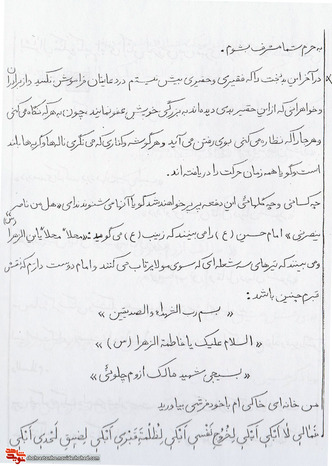 به حرم شما مشرف بشوم.
در آخر این بدبخت را که فقیری و حقیری بیش نیستم در دعایتان فراموش نکنید و از برادران
و خواهرانی که از این حقیر بدی دیده اند به بزرگی خویش عفو نمایند چون به هر که نگاه می کنی
و هر جا را که نظاره می کنی بوی رفتن می آید و هر گوشه و کناری که می نگری ناله ها و گریه ها بلند
است و گویا همه زمان حرکت را دریافته اند.
چه کسانی و چه گلهائی این دفعه پرپر خواهند شد گویا آنها می شنوند ندای «هل من ناصر
ینصرنی» امام حسین (ع) را می بینند که زینب (ع) می گوید: «مهلاً مهلاً یابن الزهرا
و می بینند که تیرهای سه شعله ای که سوی مولا پرتاب می کنند و اما دوست دارم که نقش
قبرم چنین باشد:
« بسم رب الشهداء و الصدیقین »
« السلام علیک یا فاطمة الزهرا (س) »
« بسیجی شهید مالک اژوم چلوئی »
من خانه ای خاکی ام با خود فرشی بیاورید
أبکی لخروج نفسی أبکی لظلمة قبری أبکی لضیق لحدی أبکی